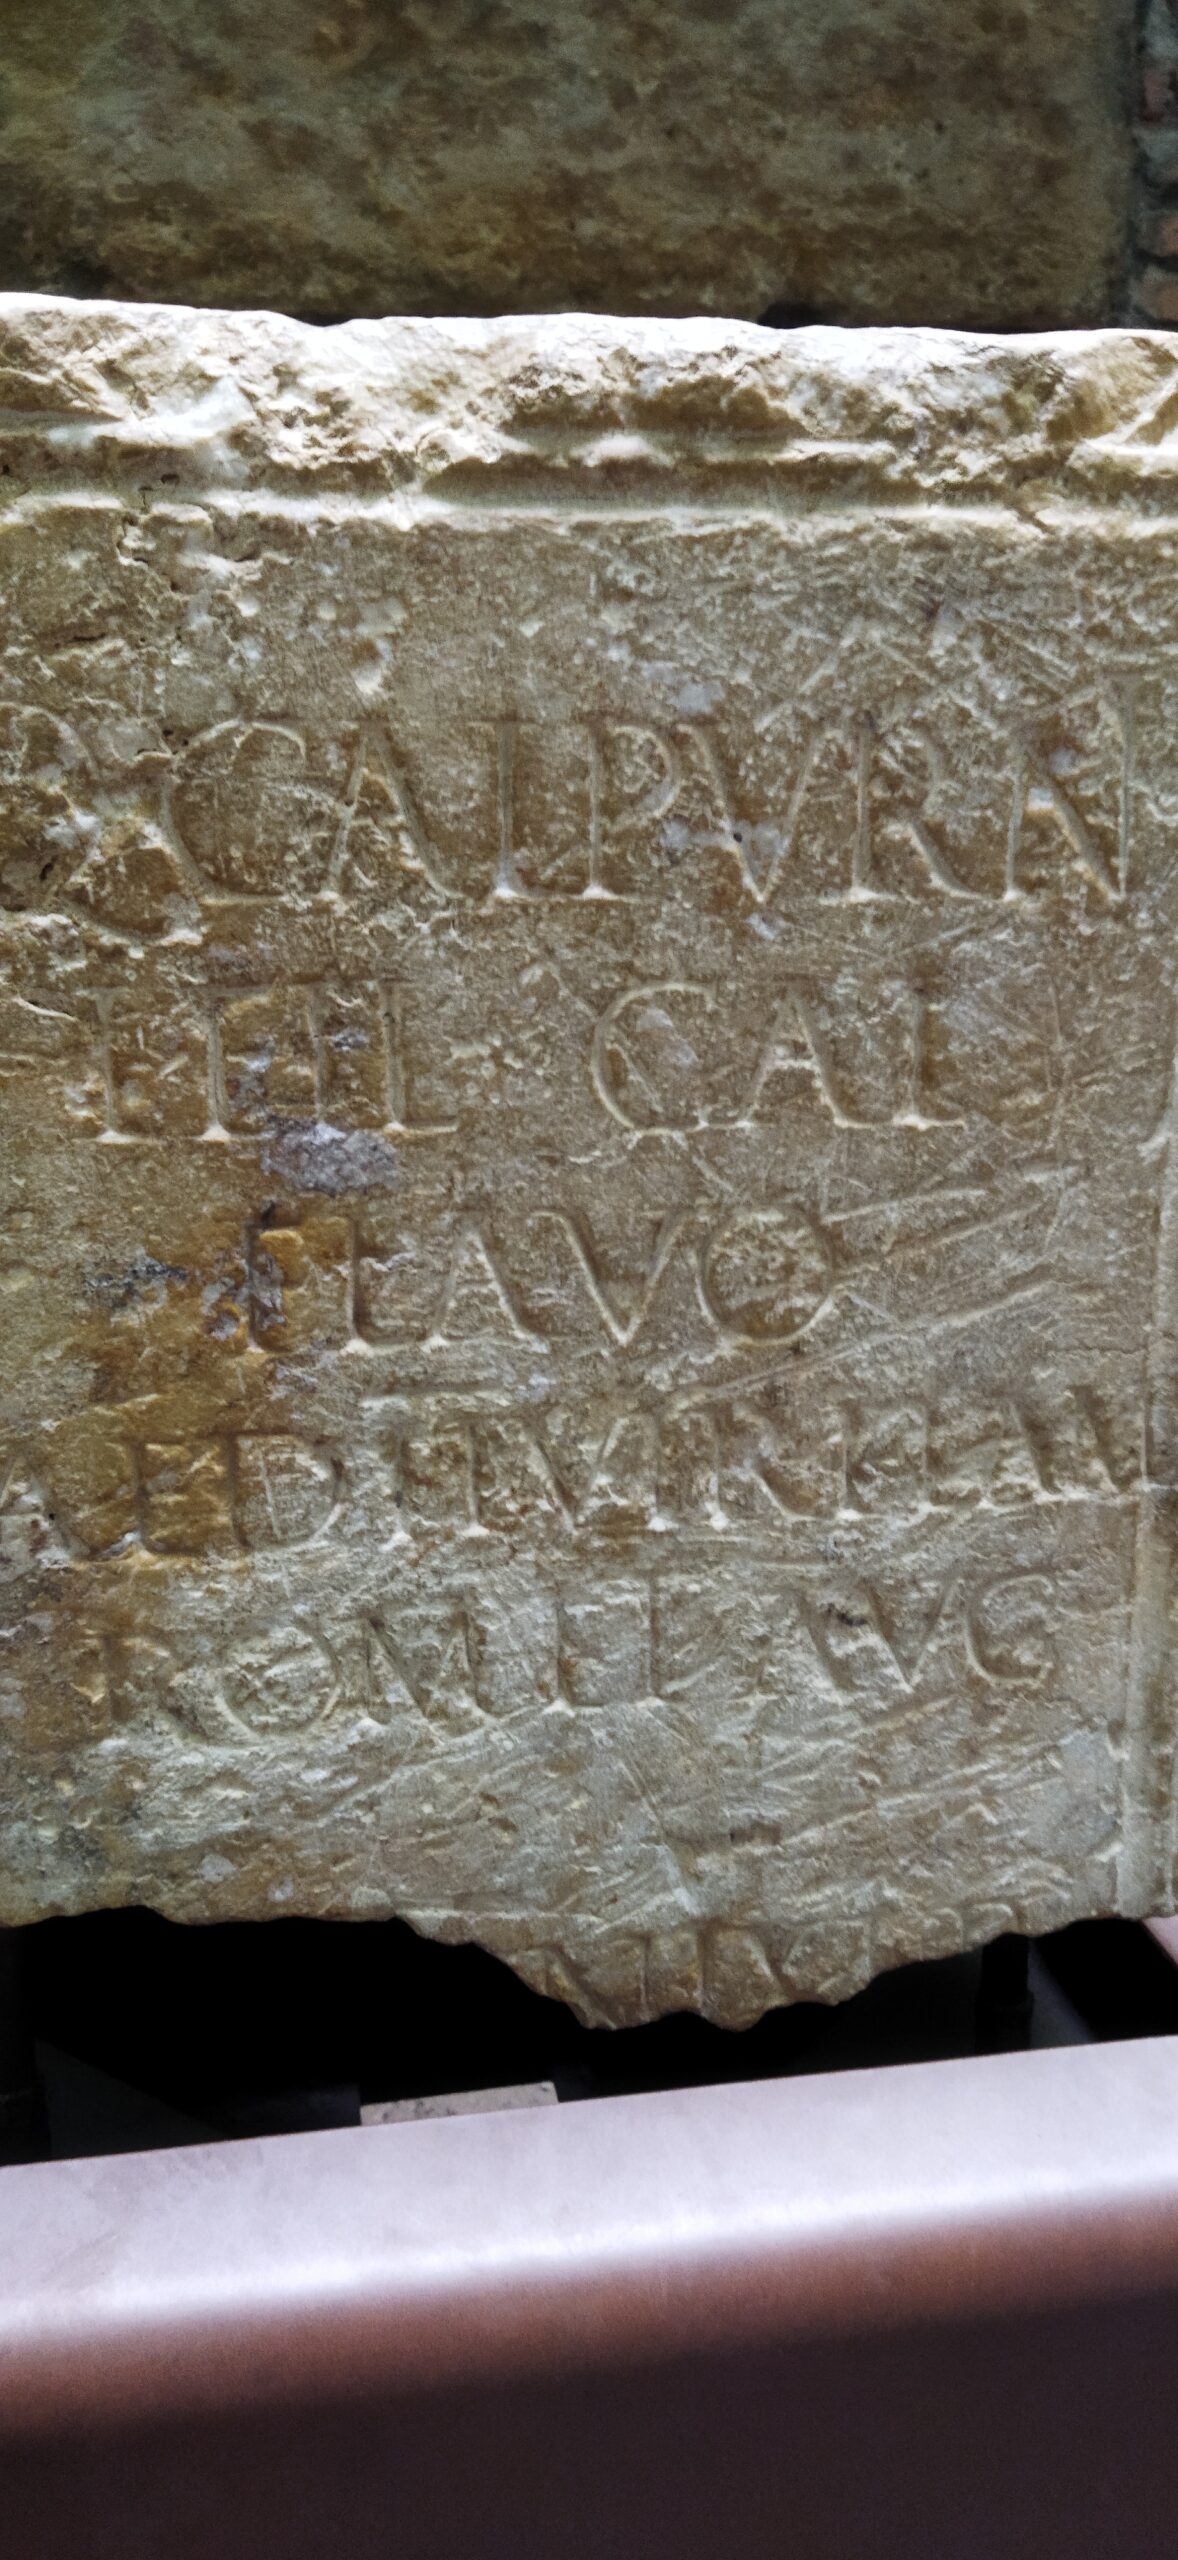 CALPVRN
FIL GAL
FLAVO
AED IIVIR FLAM
ROM ET AVG